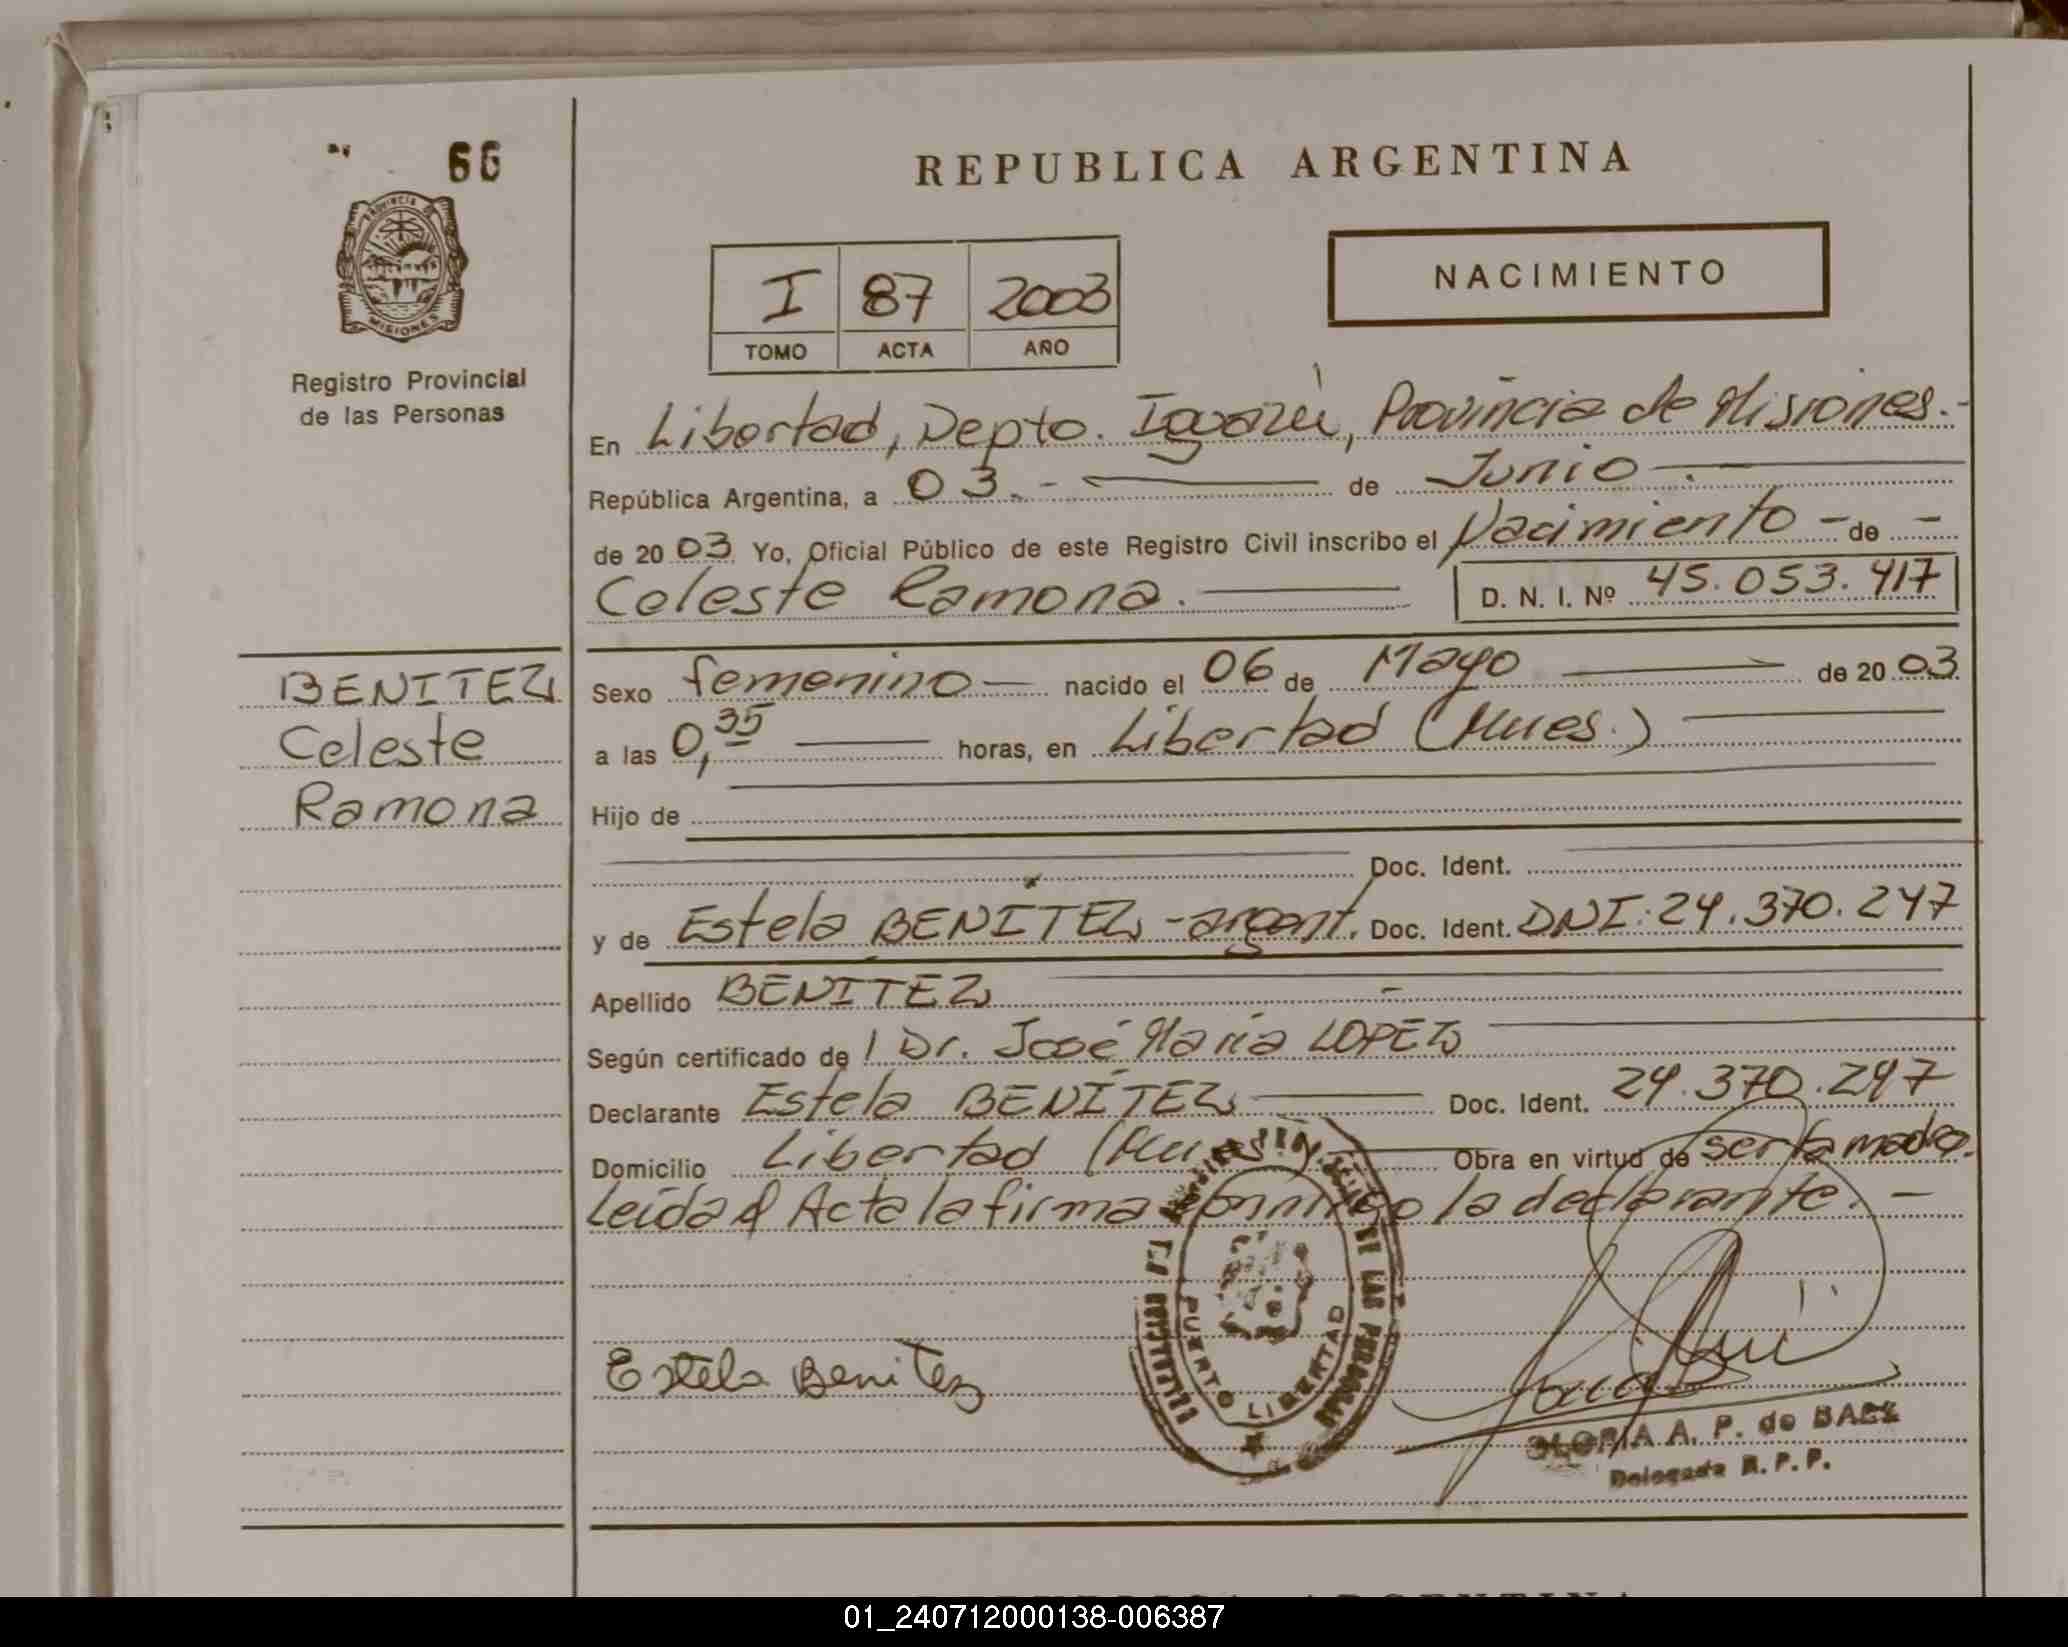 66
REPUBLICA ARGENTINA
PROVINCIA
MISIONES
Registro Provincial
de las Personas
I 87 2003
TOMO ACTA AÑO
NACIMIENTO
En Libertad, Depto. Iguazú, Provincia de Misiones.-
República Argentina, a 03.- de Junio
de 2003 Yo, Oficial Público de este Registro Civil inscribo el Nacimiento - de -
Celeste Ramona. D. N. I. Nº 45.053.417
BENITEZ
Celeste
Ramona
Sexo femenino nacido el 06 de Mayo de 2003
a las 0,35 horas, en Libertad (Mnes.)
Hijo de
Doc. Ident.
y de Estela BENÍTEZ - argent. Doc. Ident. DNI: 24.370.247
Apellido BENITEZ
Según certificado de Dr. José María LOPEZ
Declarante Estela BENÍTEZ Doc. Ident. 24.370.247
Domicilio Libertad (Mnes.) Obra en virtud de ser la madre.
Leída el Acta la firma conmigo la declarante. -
DE LAS PERSONAS
PUERTO LIBERTAD
Estela Benitez
GLORIA A. P. de BAEZ
Delegada R. P. P.
01_240712000138-006387